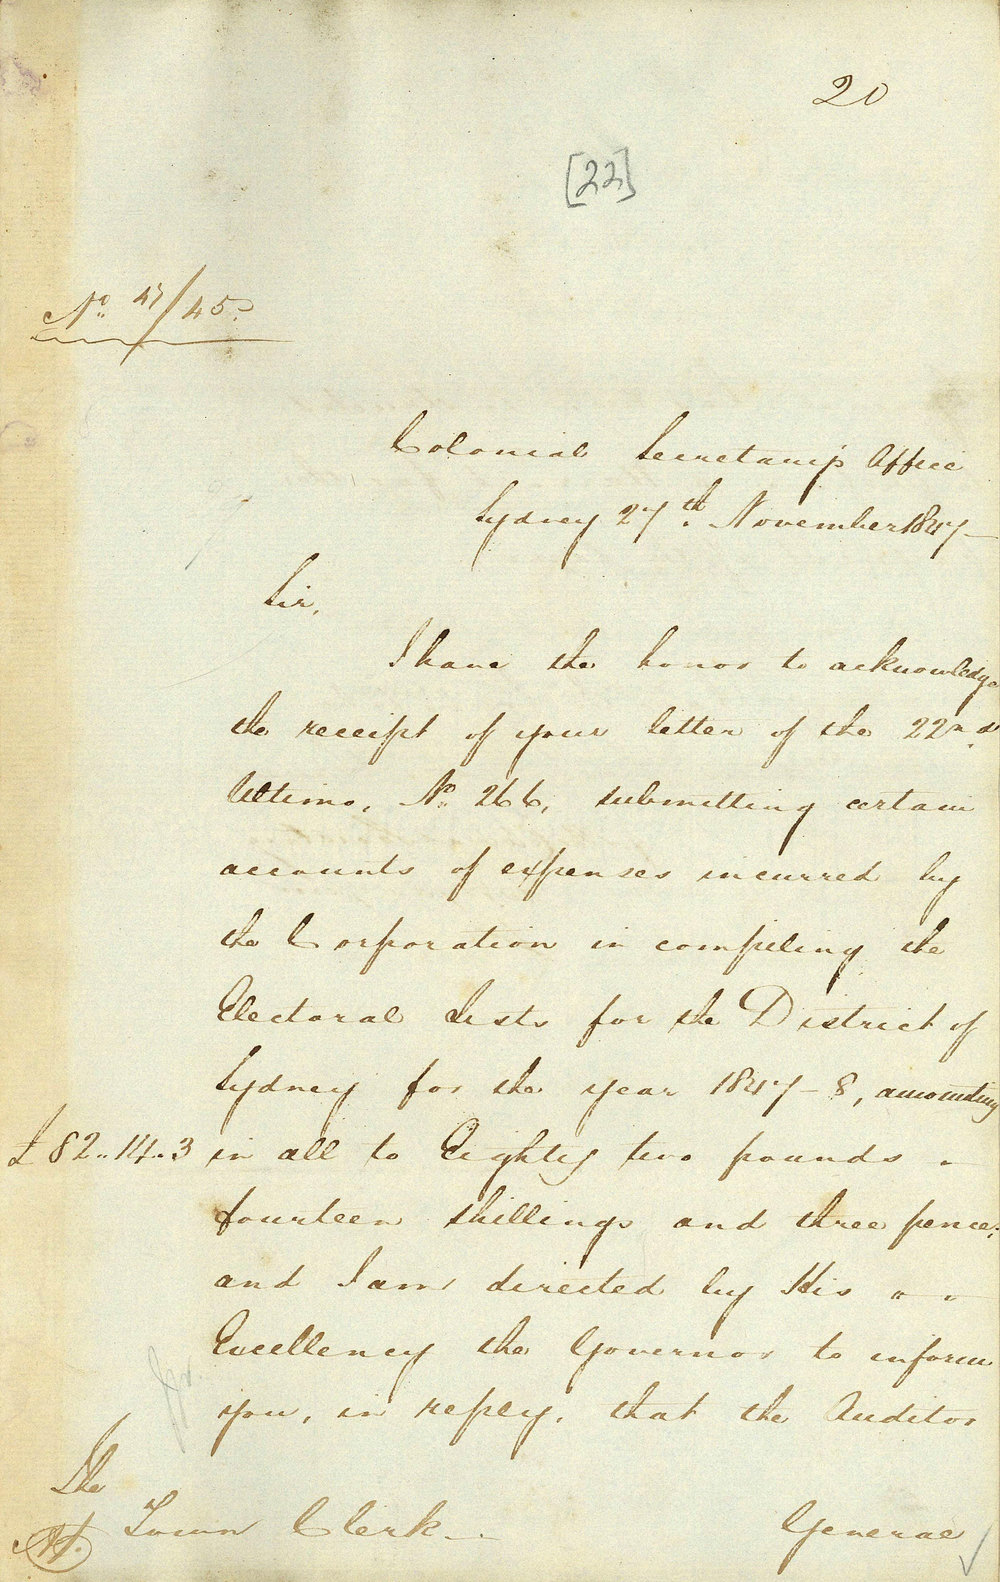 20
[22]
No. 47/45.
Colonial Secretary's Office
Sydney 27th November 1847
Sir,
I have the honor to acknowledge
the receipt of your letter of the 22nd
Ultimo, No. 266, submitting certain
accounts of expenses incurred by
the Corporation in compiling the
Electoral Lists for the District of
Sydney for the year 1847-8, amounting
£82..14..3 in all to Eighty two pounds
fourteen shillings and three pence;
and I am directed by His
Excellency the Governor to inform
you, in reply, that the Auditor
The
Town Clerk
General